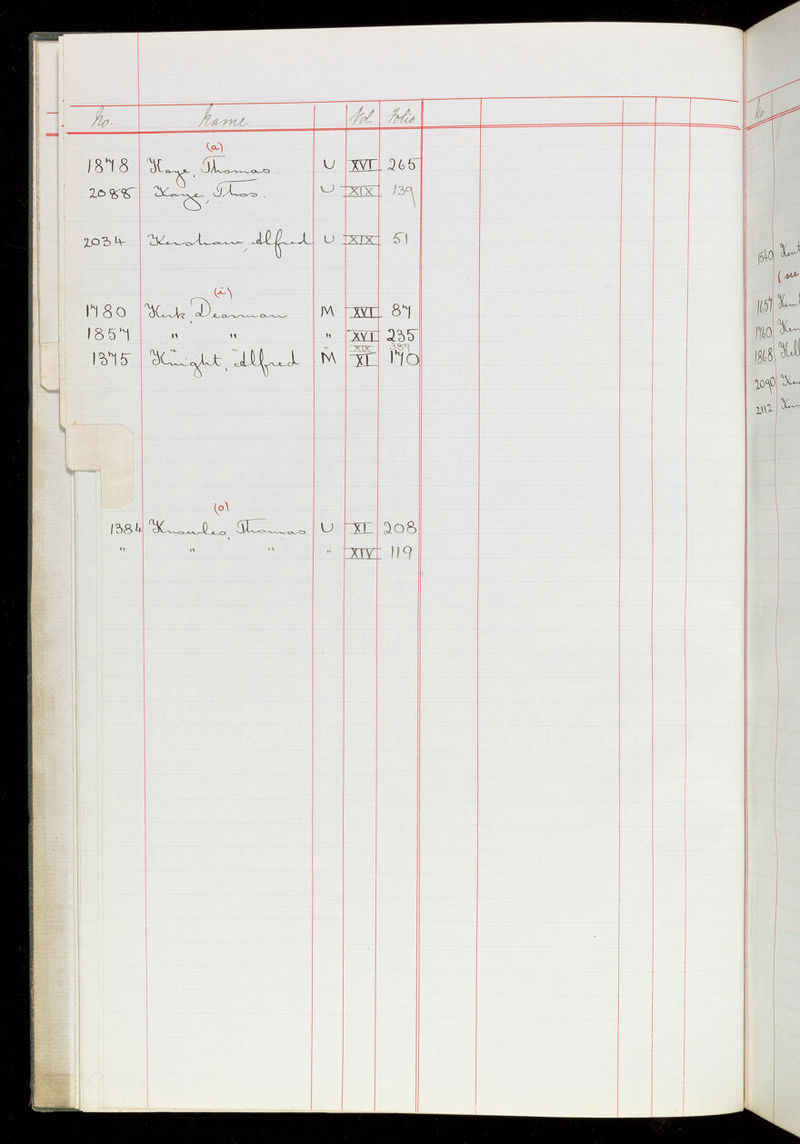 No. Name Vol Folio
(a)
1878 Kaye, Thomas. U XVI 265
2088 Kaye, Thos. U XIX 139
2034 Kershaw, Alfred U XIX 51
(i)
1780 Kirk, Dearman M XVI 87
1857 " " " XVI 235
" " " XIX 389
1375 Knight, Alfred M XI 170
(o)
1384 Knowles, Thomas U XI 208
" " " " XIV 119
No
1540 Kent
(see
1657
1760
1868 Kell
2090
2112